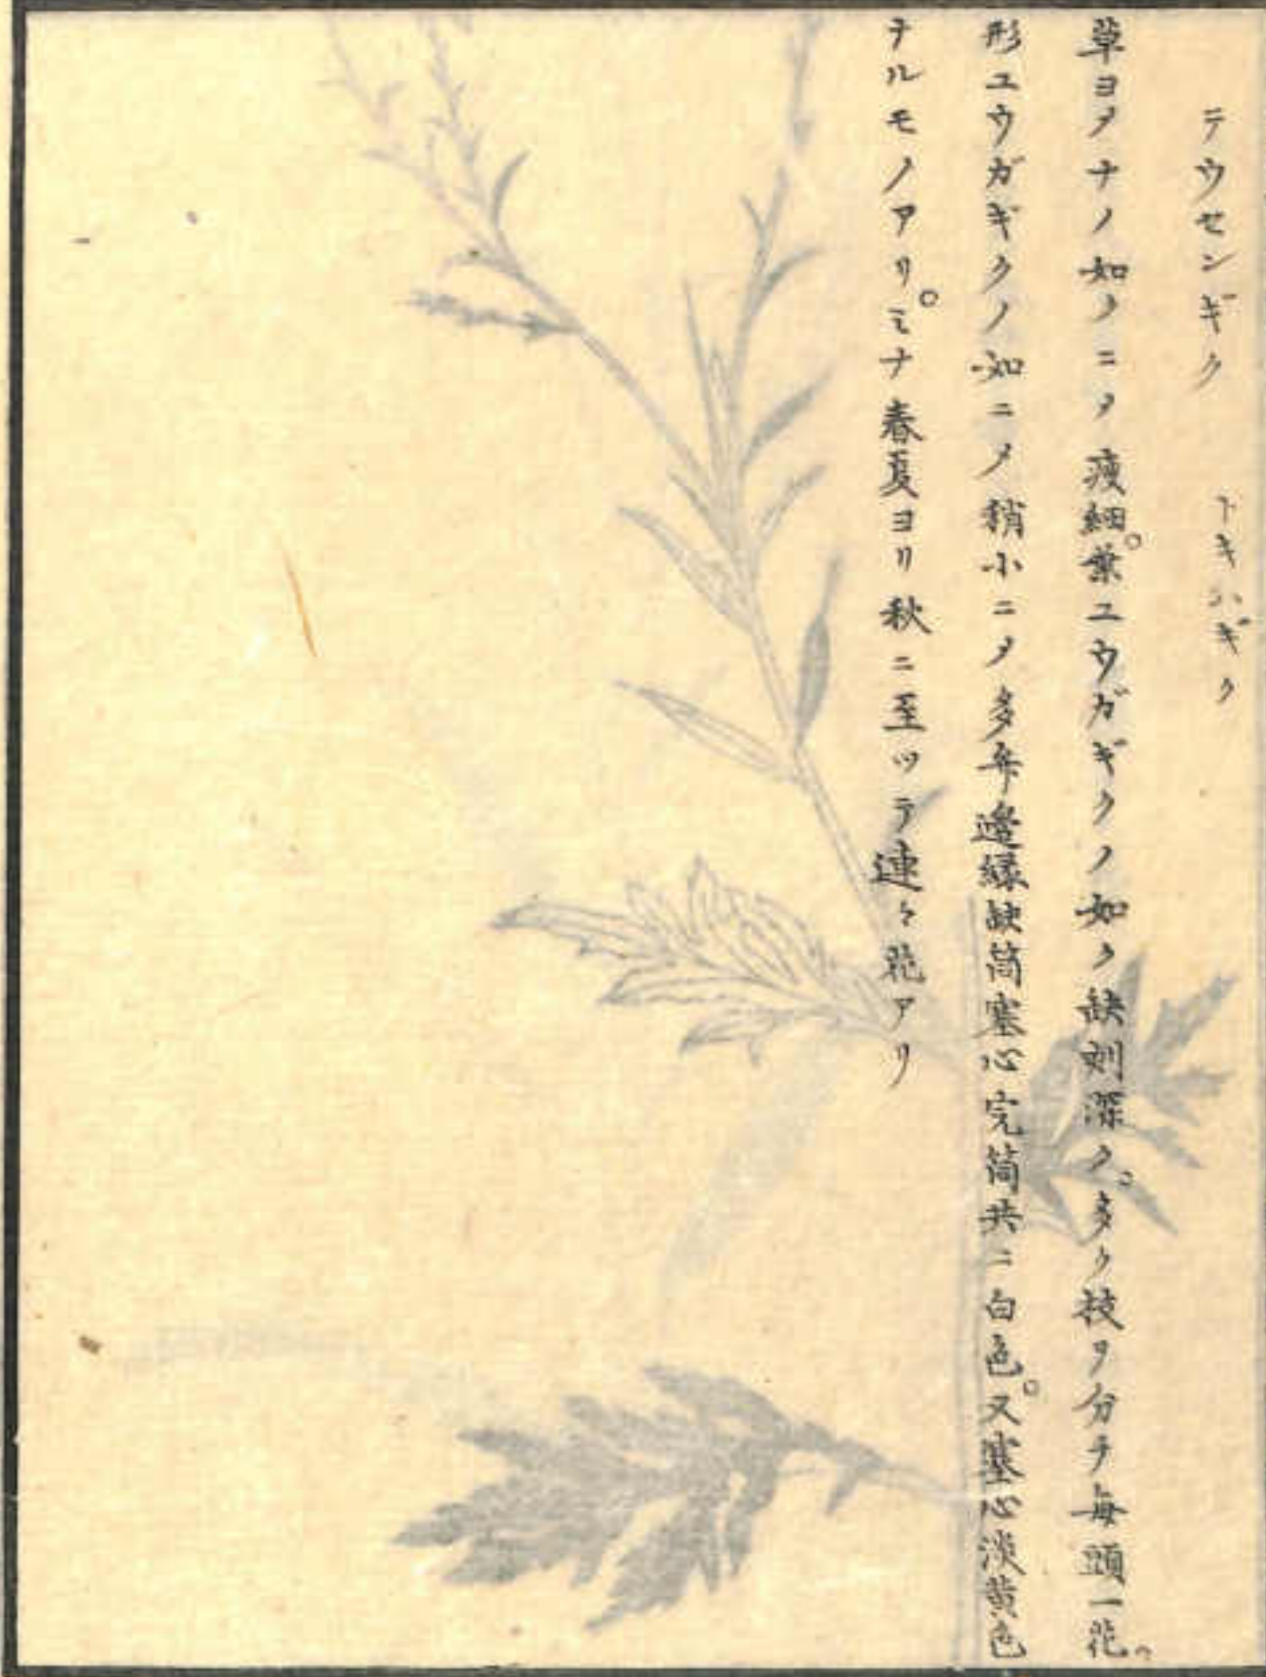 テウセンギク　トキハギク
草ヨメナノ如クニメ瘦細。葉ユウガギクノ如ク缺刻深ク。多ク枝ヲ分チ每頭一花。
形ユウガギクノ如ニメ稍小ニメ多年邊緣缺筒塞心完筒共ニ白色。又塞心淡黄色
ナルモノアリ。ミナ春夏ヨリ秋ニ至ツテ連々花アリ